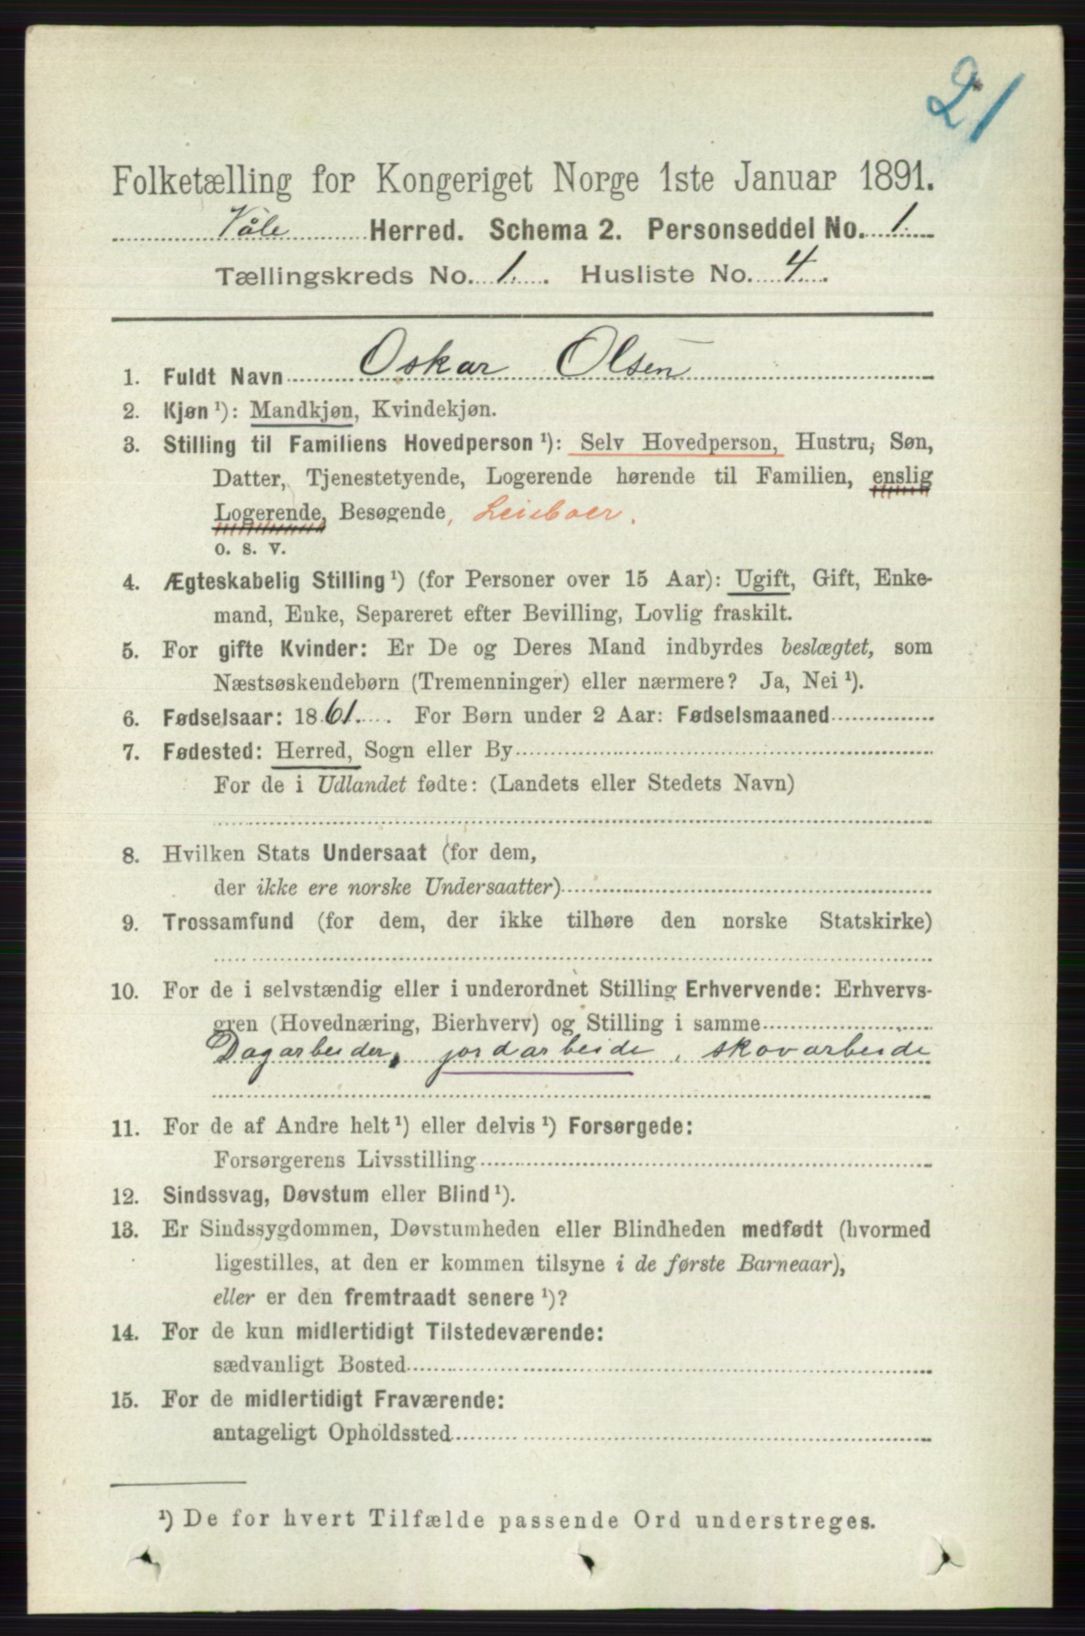 21
Folketælling for Kongeriget Norge 1ste Januar 1891.
Våle Herred. Schema 2. Personseddel No. 1.
Tællingskreds No. 1. Husliste No. 4.
1. Fuldt Navn Oskar Olsen
2. Kjøn ¹): Mandkjøn, Kvindekjøn.
3. Stilling til Familiens Hovedperson ¹): Selv Hovedperson, Hustru, Søn,
Datter, Tjenestetyende, Logerende hørende til Familien, enslig
Logerende, Besøgende, Leieboer.
o. s. v.
4. Ægteskabelig Stilling ¹) (for Personer over 15 Aar): Ugift, Gift, Enke-
mand, Enke, Separeret efter Bevilling, Lovlig fraskilt.
5. For gifte Kvinder: Er De og Deres Mand indbyrdes beslægtet, som
Næstsøskendebørn (Tremenninger) eller nærmere? Ja, Nei ¹).
6. Fødselsaar: 1861. For Børn under 2 Aar: Fødselsmaaned
7. Fødested: Herred, Sogn eller By
For de i Udlandet fødte: (Landets eller Stedets Navn)
8. Hvilken Stats Undersaat (for dem,
der ikke ere norske Undersaatter)
9. Trossamfund (for dem, der ikke tilhøre den norske Statskirke)
10. For de i selvstændig eller i underordnet Stilling Erhvervende: Erhvervs-
gren (Hovednæring, Bierhverv) og Stilling i samme
Dagarbeider, jordarbeide, skovarbeide
11. For de af Andre helt ¹) eller delvis ¹) Forsørgede:
Forsørgerens Livsstilling
12. Sindssvag, Døvstum eller Blind ¹).
13. Er Sindssygdommen, Døvstumheden eller Blindheden medfødt (hvormed
ligestilles, at den er kommen tilsyne i de første Barneaar),
eller er den fremtraadt senere ¹)?
14. For de kun midlertidigt Tilstedeværende:
sædvanligt Bosted
15. For de midlertidigt Fraværende:
antageligt Opholdssted
¹) De for hvert Tilfælde passende Ord understreges.